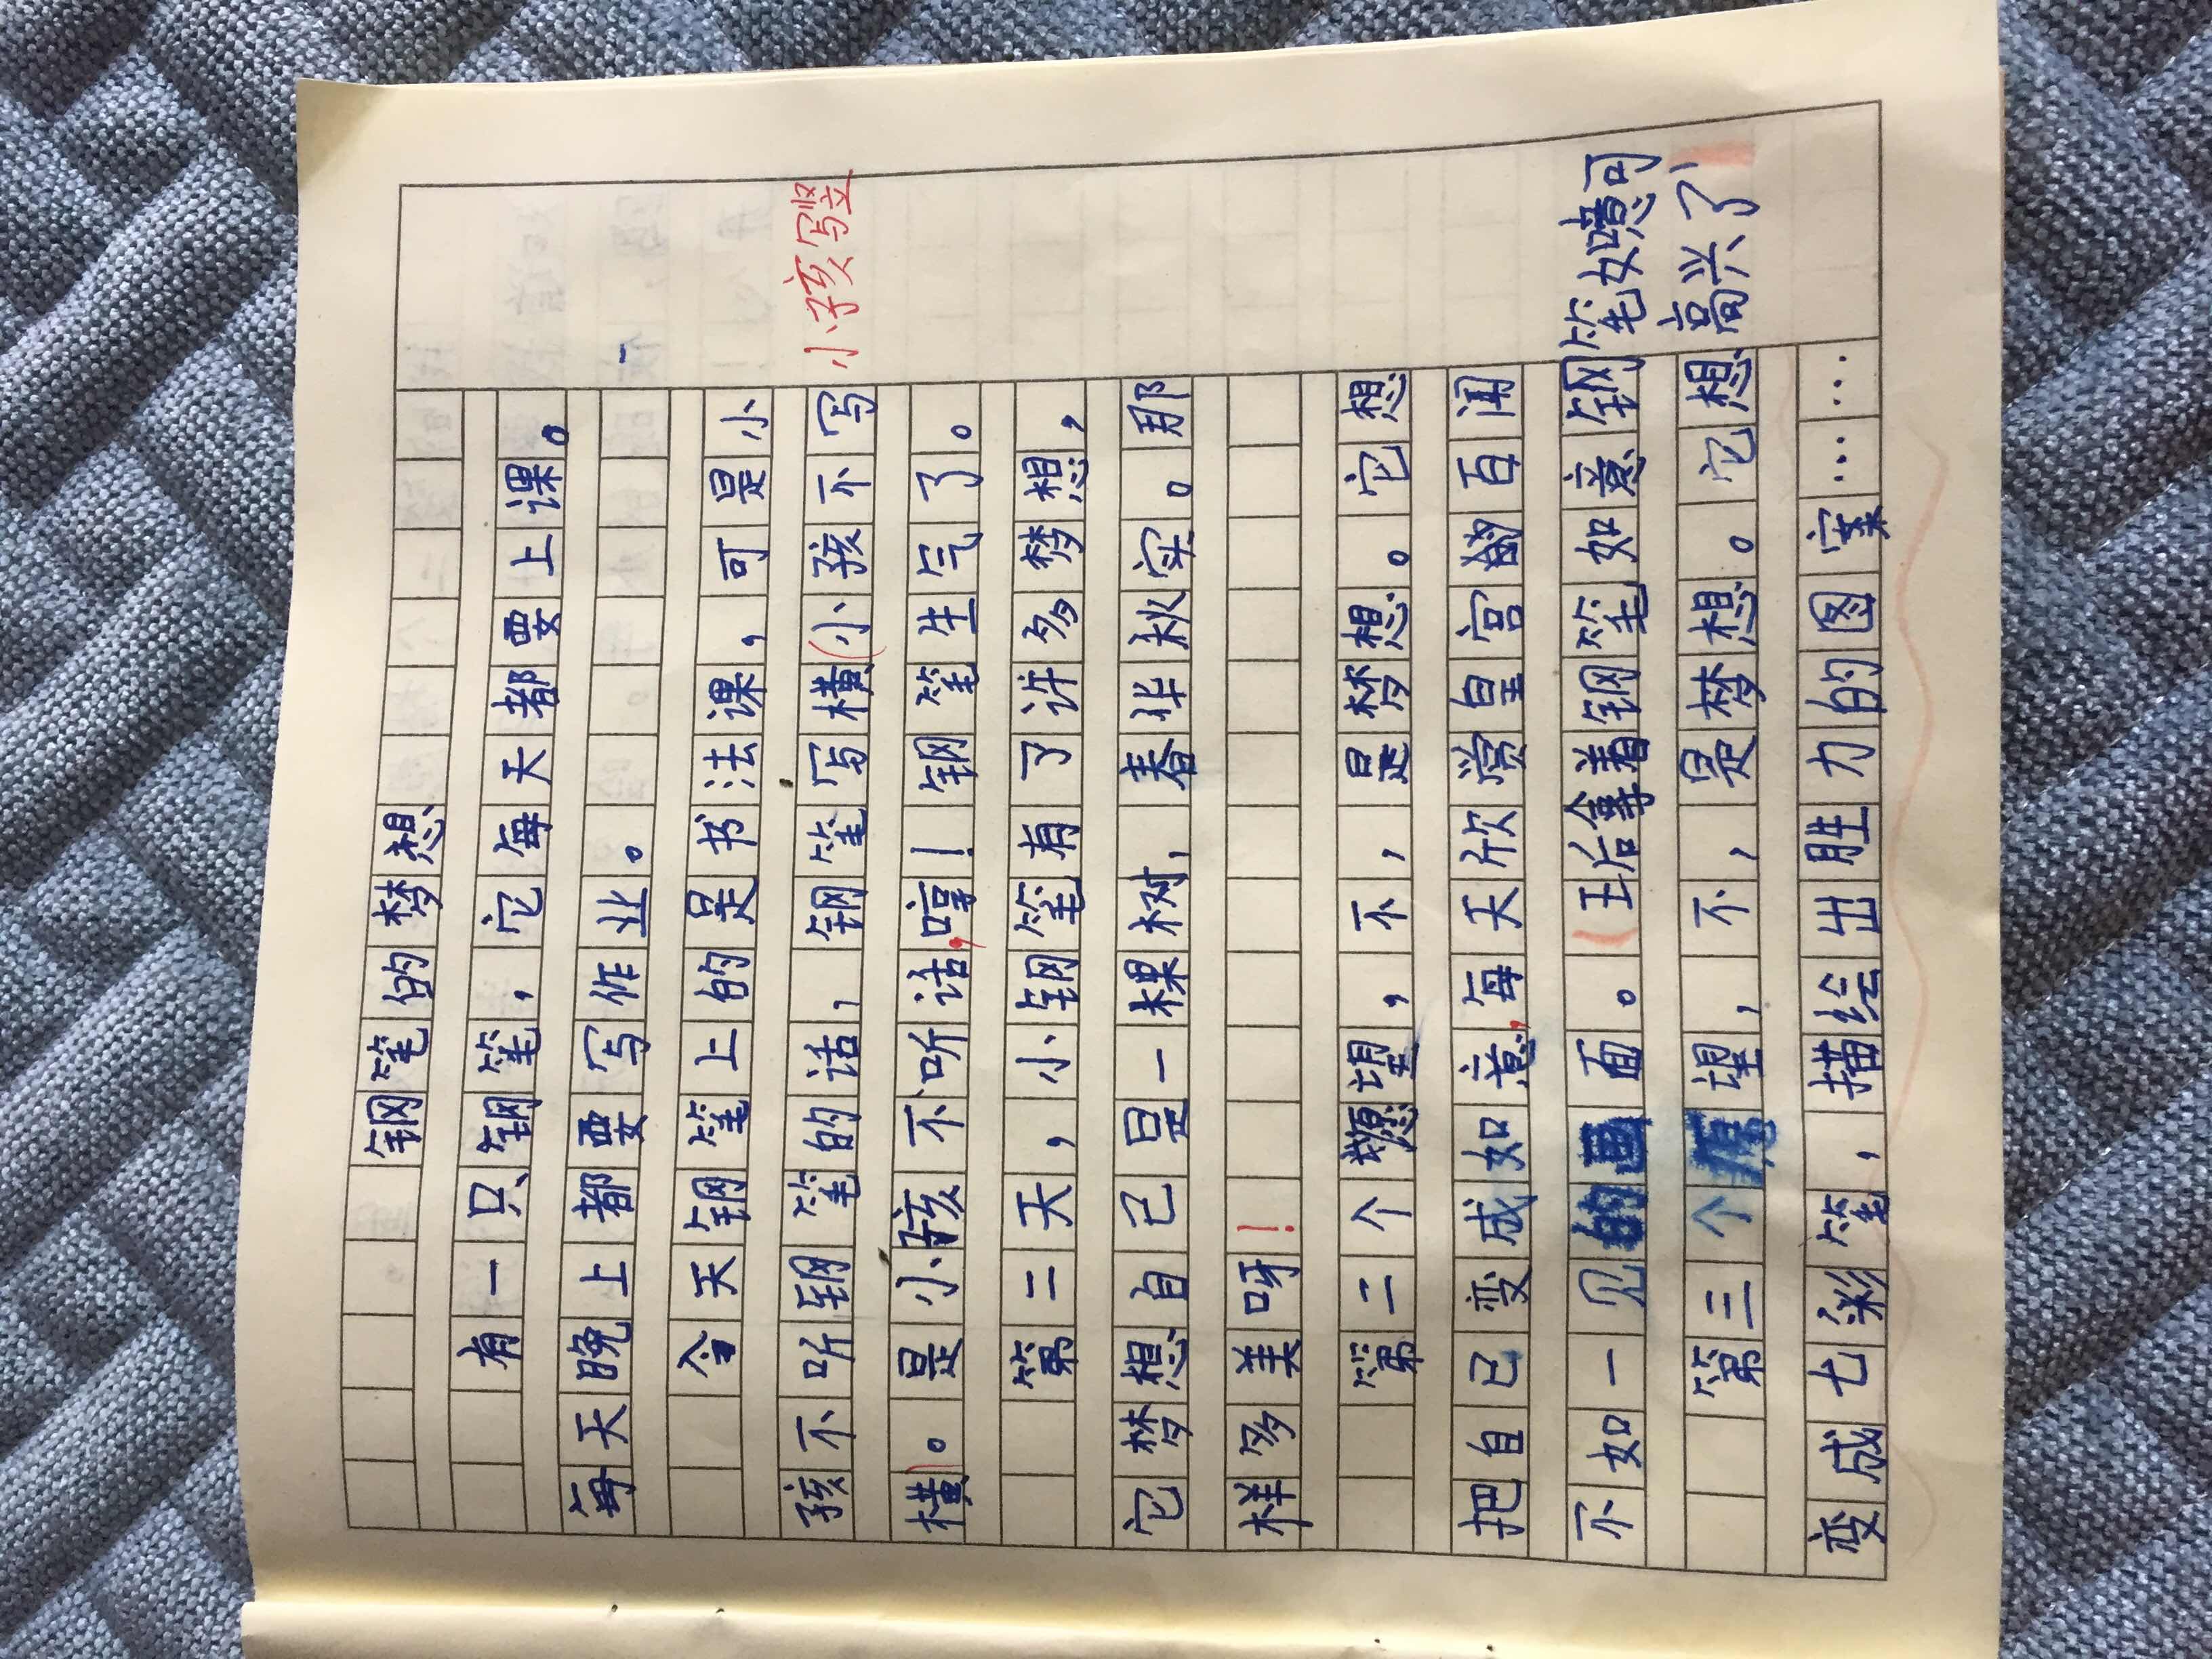 钢笔的梦想
有一只钢笔，它每天都要上课。
每天晚上都要写作业。
今天钢笔上的是书法课，可是小
孩不听钢笔的话，钢笔写横(小孩不写 小孩写竖
横)。是小孩不听话，哼！钢笔生气了。
第二天，小钢笔有了许多梦想，
它梦想自己是一棵树，春华秋实。那
样多美呀！
第二个愿望，不，是梦想。它想
把自己变成如意，每天欣赏皇宫的百闻
不如一见面。(王后拿着钢笔如意钢笔如意可
高兴了)
第三个愿望，不，是梦想。它想
变成七彩笔，描绘出胜力的图案……